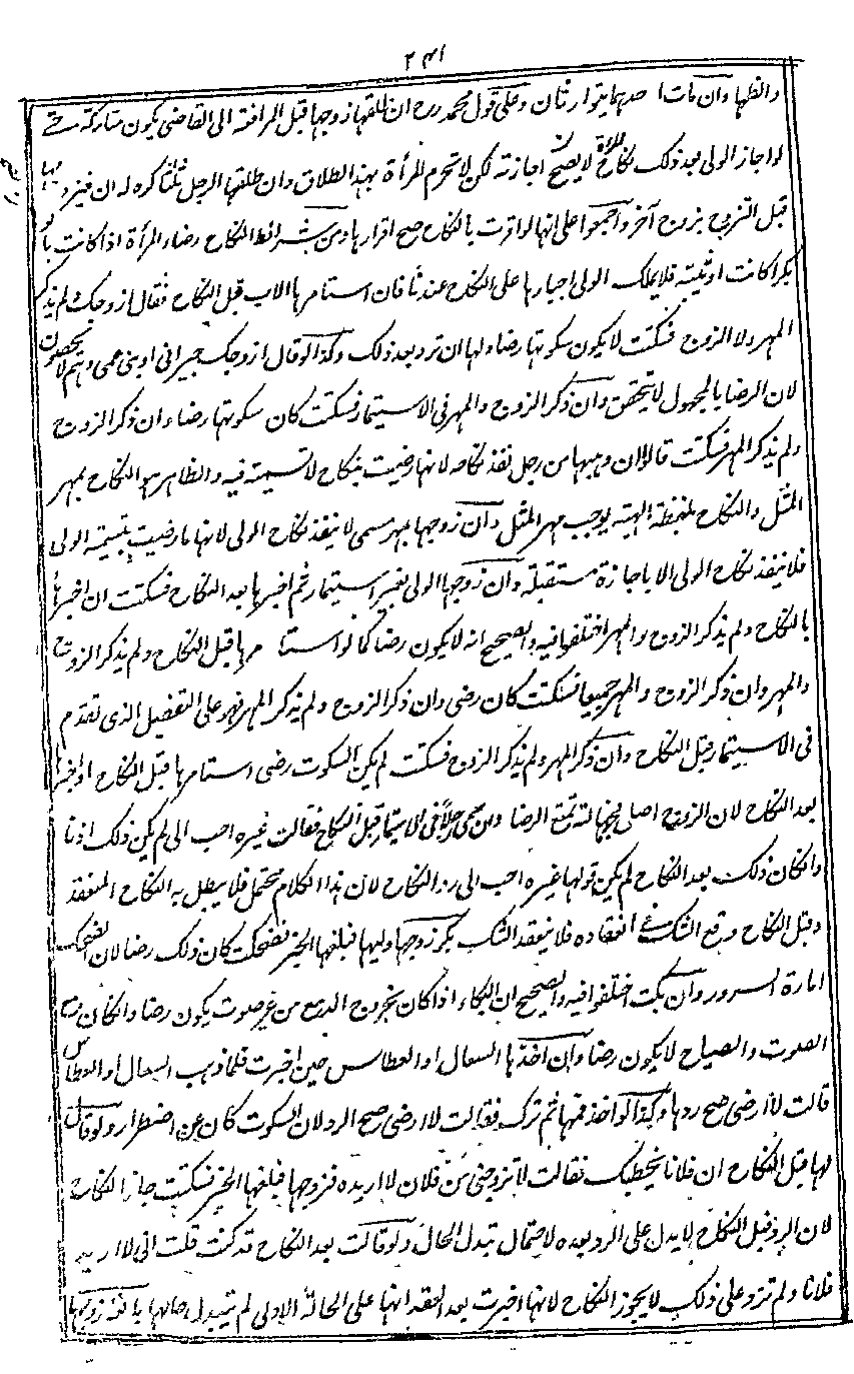 والظهار وان مات احدهما يتوارثان وعلى قول محمد رح ان طلقها زوجها قبل المرافعة الى القاضى يكون متاركة حتى
لو اجاز الولى بعد ذلك نكاح المرأة لا يصح اجازته لكن لا تحرم المرأة بهذا الطلاق وان طلقها الرجل ثلثا كره له ان يتزوجها
قبل التزوج بزوج آخر واجمعوا على انها لو اقرت بالنكاح صح اقرارها ومن شرائط النكاح رضاء المرأة اذا كانت بالغة
بكرا كانت او ثيبة فلا يملك الولى اجبارها على النكاح عندنا فان استامرها الاب قبل النكاح فقال ازوجك ولم يذكر
المهر ولا الزوج فسكتت لا يكون سكوتها رضا ولها ان ترد بعد ذلك وكذا لو قال ازوجك جيرانى او بنى عمى وهم لا يحصون
لان الرضا بالمجهول لا يتحقق وان ذكر الزوج والمهر فى الاستيمار فسكتت كان سكوتها رضاء وان ذكر الزوج
ولم يذكر المهر فسكتت قالوا ان وهبها من رجل نفذ نكاحه لانها رضيت بنكاح لا تسمية فيه والظاهر هو النكاح بمهر
المثل والنكاح بلفظة الهبة يوجب مهر المثل وان زوجها بمهر مسمى لا ينفذ نكاح الولى لانها ما رضيت بتسمية الولى
فلا ينفذ نكاح الولى الا باجازة مستقبلة وان زوجها الولى بغير استيمار ثم اخبرها بعد النكاح فسكتت ان اخبرها
بالنكاح ولم يذكر الزوج والمهر اختلفوا فيه والصحيح انه لا يكون رضا كما لو استامرها قبل النكاح ولم يذكر الزوج
والمهر وان ذكر الزوج والمهر جميعا فسكتت كان رضى وان ذكر الزوج ولم يذكر المهر فهو على التفصيل الذى تقدم
فى الاستيمار قبل النكاح وان ذكر المهر ولم يذكر الزوج فسكتت لم يكن السكوت رضى استامرها قبل النكاح او اخبرها
بعد النكاح لان الزوج اصلى فجهالته تمنع الرضا وان سمى رجلا فى الاستيمار قبل النكاح فقالت غيره احب الى لم يكن ذلك اذنا
وان كان ذلك بعد النكاح لم يكن قولها غيره احب الى رد النكاح لان هذا الكلام محتمل فلا يبطل به النكاح المنعقد
وقبل النكاح وقع الشك فى انعقاده فلا ينعقد بالشك بكر زوجها وليها فبلغها الخبر فضحكت كان ذلك رضا لان الضحك
امارة السرور وان بكت اختلفوا فيه والصحيح ان البكاء اذا كان بخروج الدمع من غير صوت يكون رضا وان كان مع
الصوت والصياح لا يكون رضا وان اخذها السعال او العطاس حين اخبرت فلما ذهب السعال او العطاس
قالت لا ارضى صح ردها وكذا لو اخذ فمها ثم ترك فقالت لا ارضى صح الرد لان السكوت كان عن اضطرار ولو قال
لها قبل النكاح ان فلانا يخطبك فقالت لا تزوجنى من فلان لا اريده فزوجها فبلغها الخبر فسكتت جاز النكاح
لان الرد قبل النكاح لا يدل على الرد بعده لاحتمال تبدل الحال ولو قالت بعد النكاح قد كنت قلت انى لا اريد
فلانا ولم تزد على ذلك لا يجوز النكاح لانها اخبرت بعد العقد انها على الحالة الاولى لم تتبدل حالها